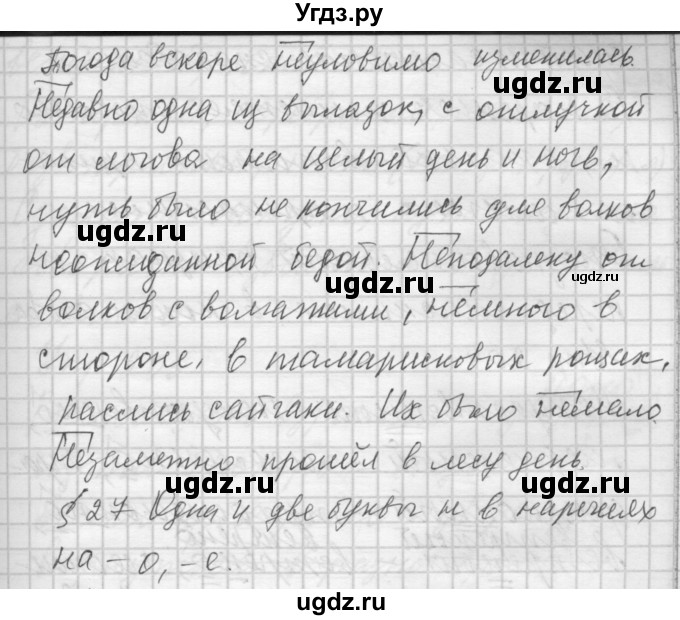 Угдз.ру
Погода вскоре неуловимо изменилась.
Недавно одна из вылазок, с отлучкой
от логова на целый день и ночь,
чуть было не кончились для волков
неожиданной бедой. Неподалеку от
волков с волчатами, немного в
стороне, в тамарисковых рощах,
паслись сайгаки. Их было немало.
Незаметно прошёл в лесу день.
§ 27 Одна и две буквы н в наречиях
на -о, -е.
ugdz.ru
ugdz.ru
ugdz.ru
ugdz.ru
ugdz.ru
ugdz.ru
ugdz.ru
ugdz.ru
ugdz.ru